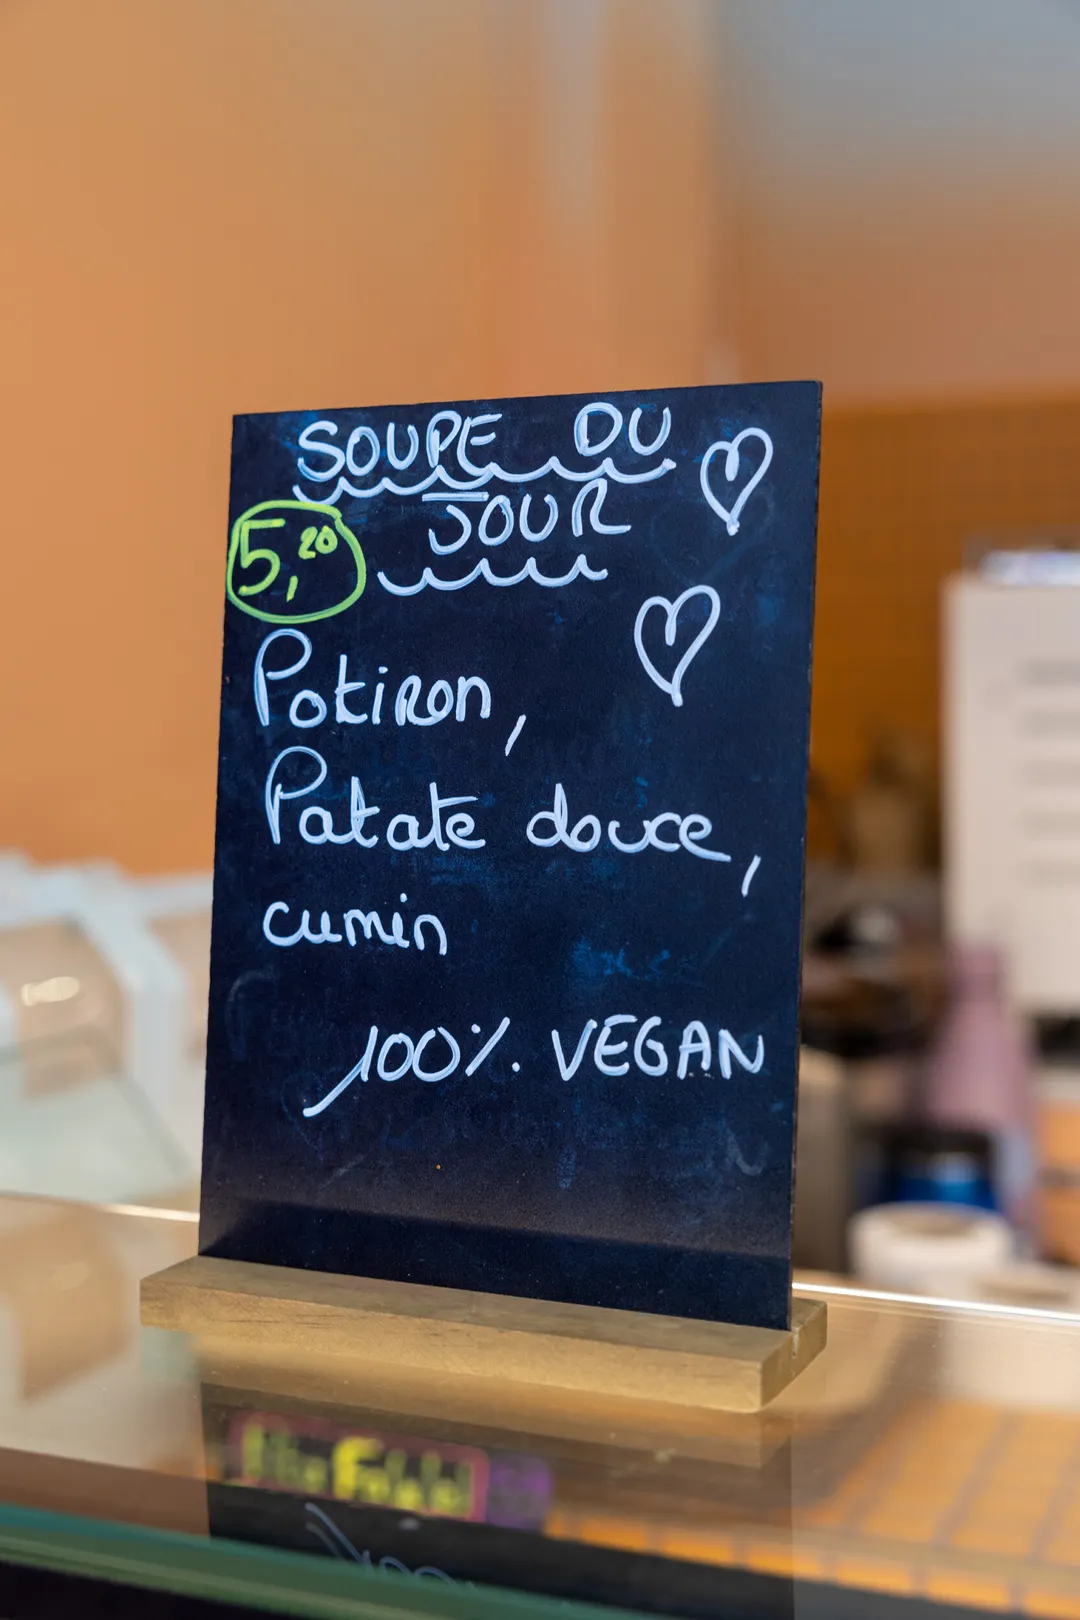 SOUPE DU
JOUR
5,20
Potiron,
Patate douce,
cumin
100% VEGAN